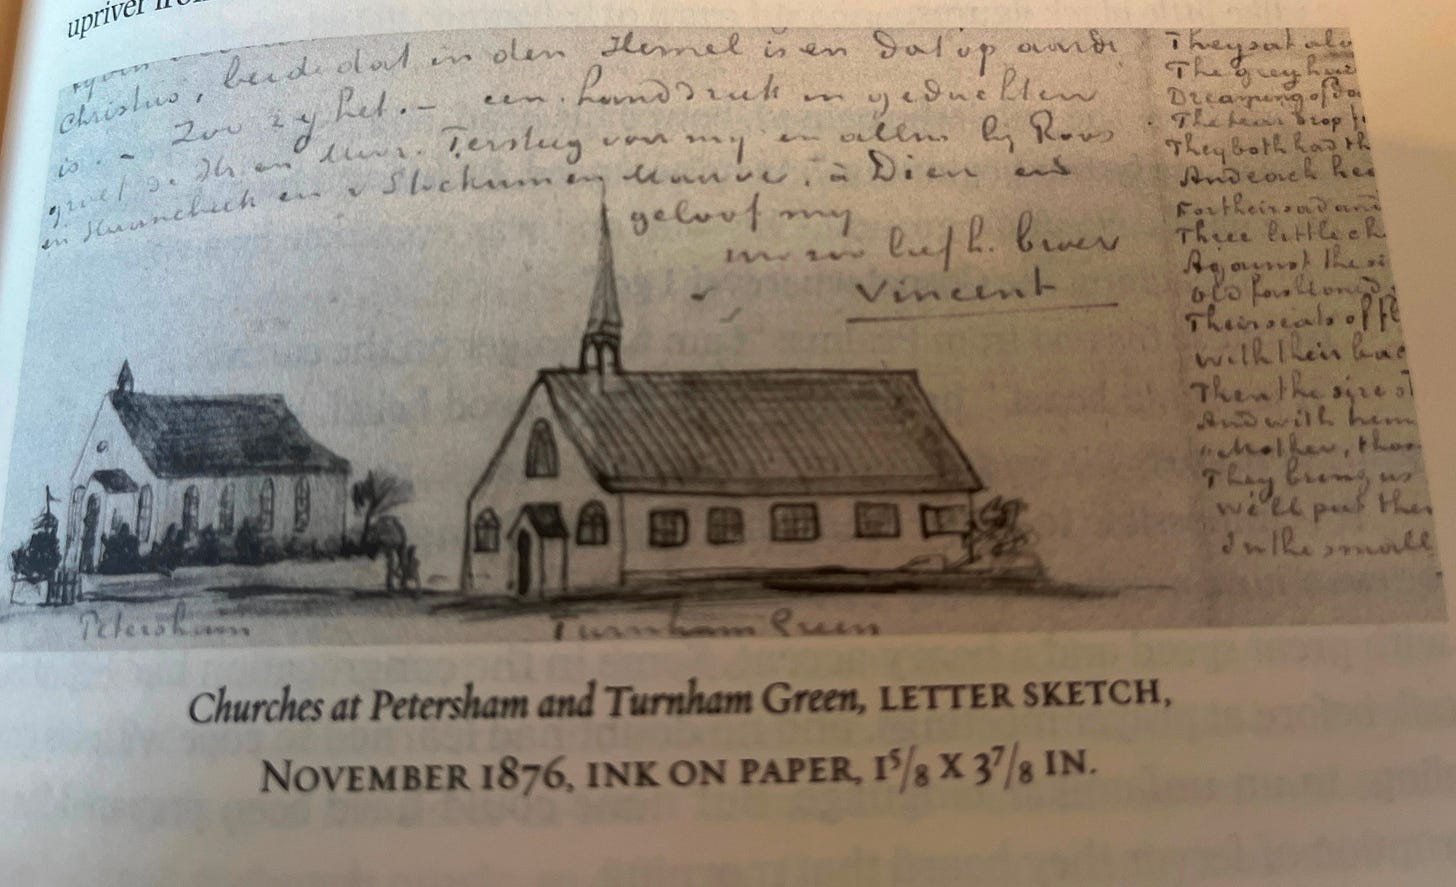 upriver from
Christus, beide dat in den Hemel is en dat op aarde
is. – Zoo zy het. – een handdruk in gedachten
groet de Hr. en Mevr. Tersteeg voor my en allen by Roos
en Haanebeek en v Stockum en Mauve, à Dieu en
geloof my
liefh. broer
Vincent
They sat alo
The grey hai
Dreaming of da
The tear drop f
They both had th
And each hea
For their sad and
Three little ch
Against the si
Old fashioned
Their seats of fl
With their bac
Then the sire
And with hem
"Mother, tho
They bring us
We'll put the
In the small
Petersham
Turnham Green
Churches at Petersham and Turnham Green, LETTER SKETCH,
NOVEMBER 1876, INK ON PAPER, 1 5/8 X 3 7/8 IN.